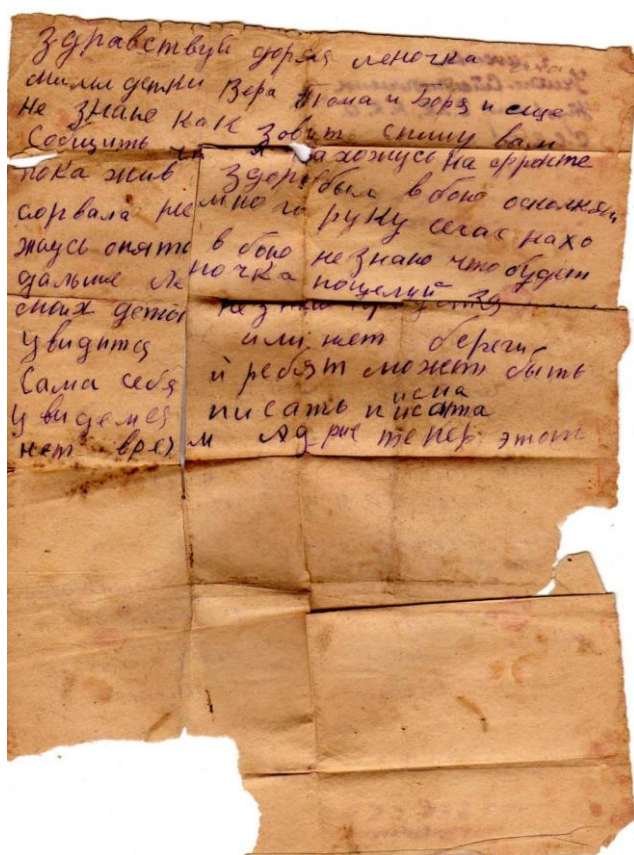 Здравствуй дорая Леночка
милы детки Вера Тома и Боря и еще
не знаю как Зовить спишу вам
Сообщить я нахожусь на фронте
пока жив Здоров был в бою осколкам
сорвала немного руку сечас нахо
жусь опято в бою не знаю что будит
дальше Леночка поцелий
моих детей не знаю придется
увидится или нет береги
Сама себя и ребят может быть
увидемся писать писма
нет врем Адрис тепер этот